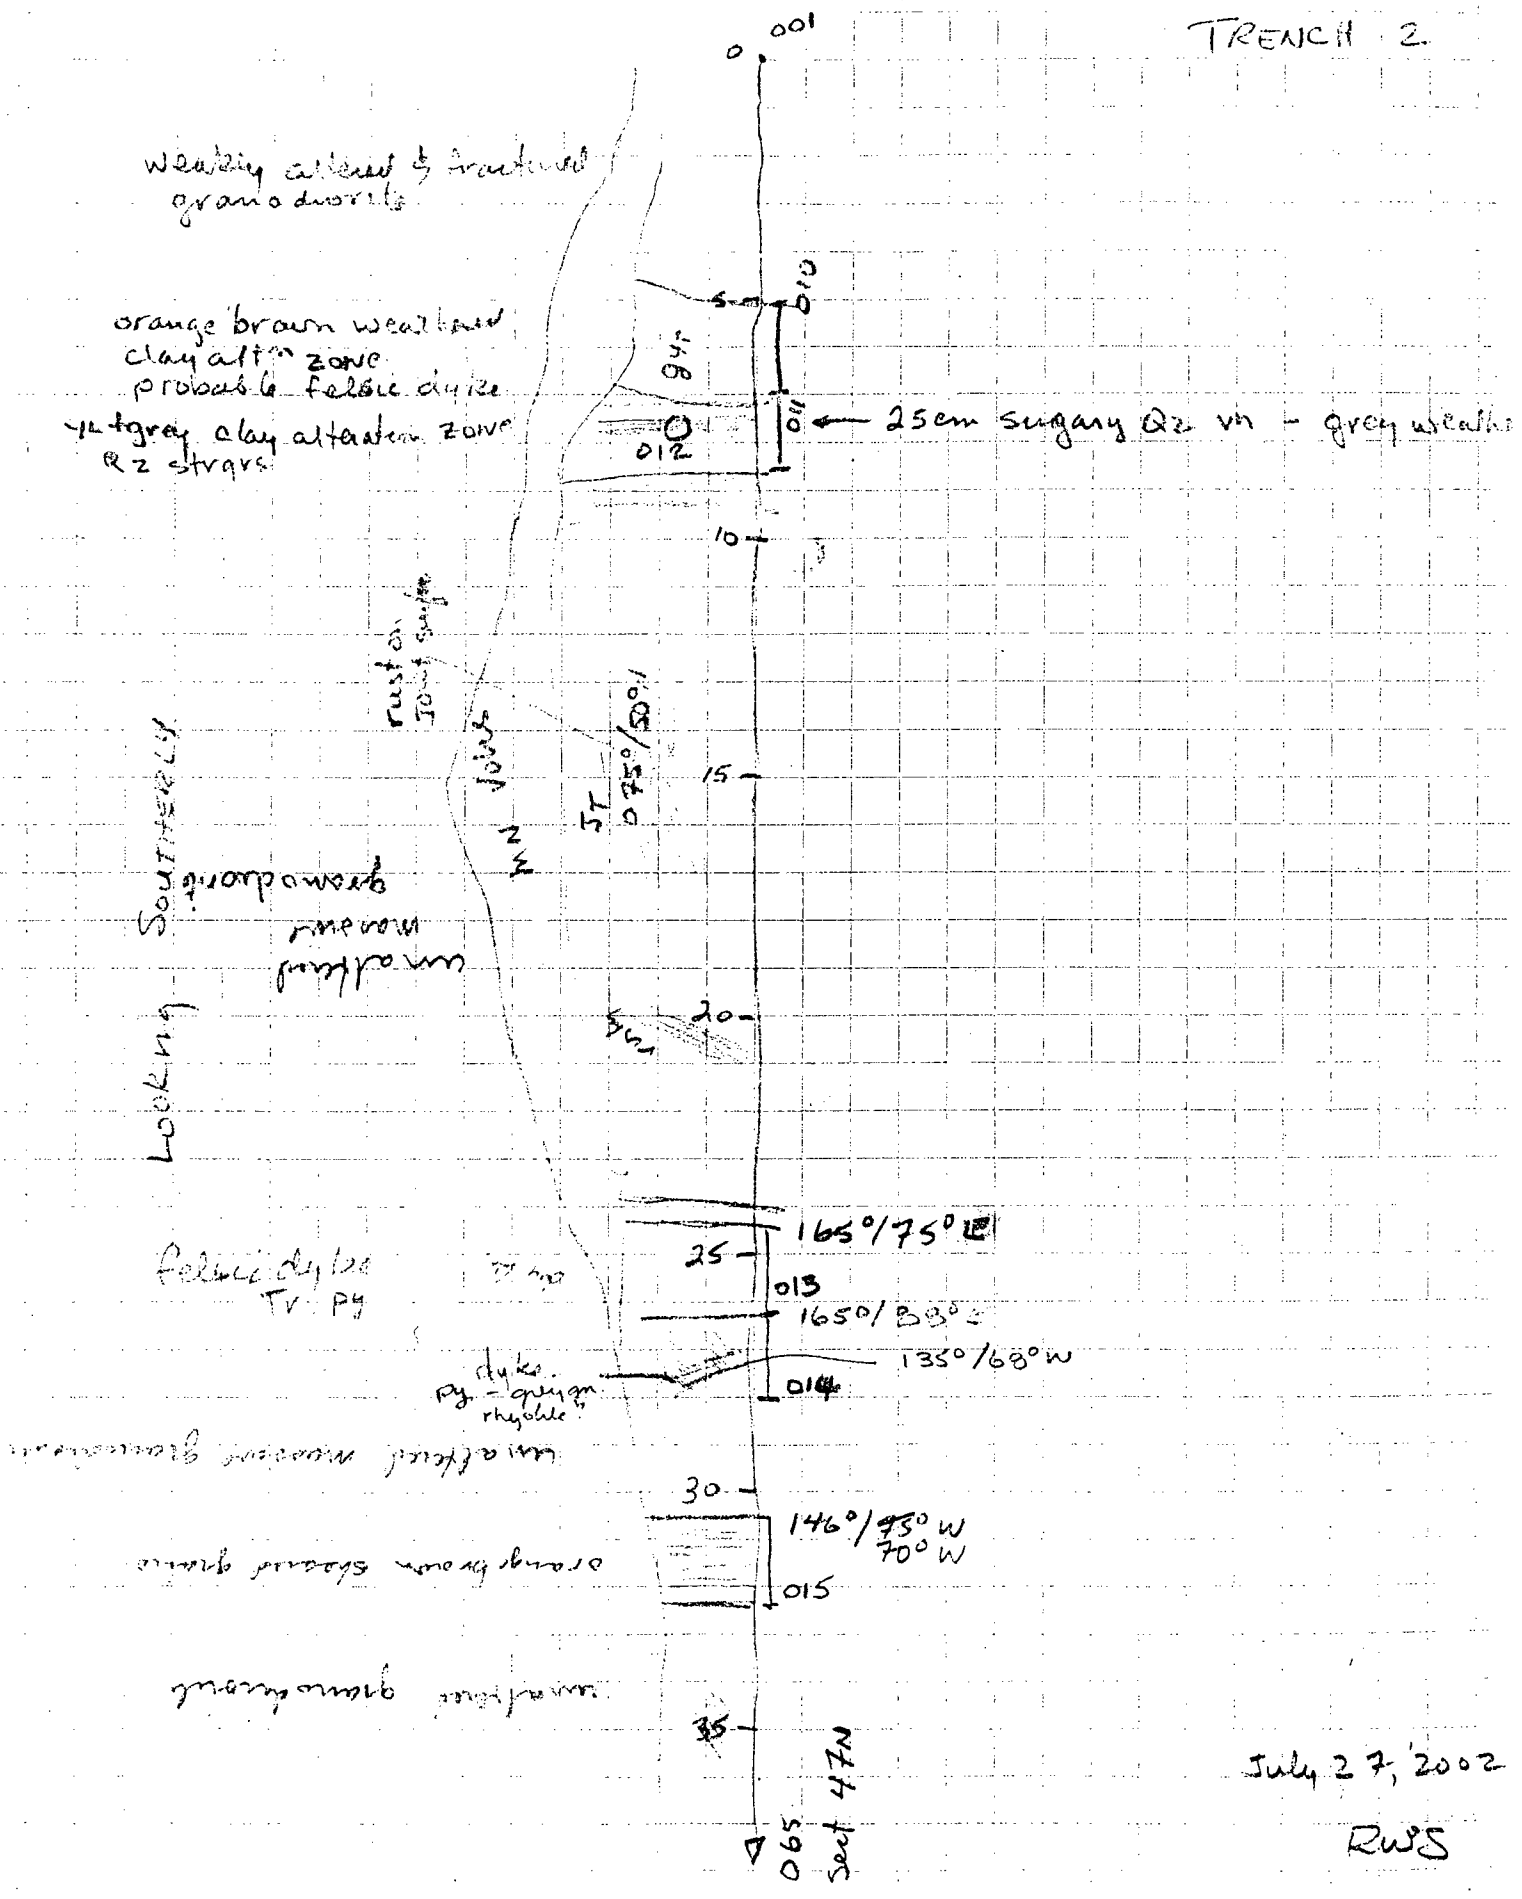 TRENCH 2
001
0
weakly altered & fractured
granodiorite
5
010
orange brown weathered
clay altn zone
probable felsic dyke
grey clay alteration zone
Qz strgrs
012
011
← 25cm sugary Qz vn - grey
10
rust on
Joint
JT
075°/50°
15
Looking SOUTHERLY
unaltered
massive
granodiorite
20
165°/75° E
25
013
felsic dyke
Tr py
165°/
135°/68°W
dyke
py -
rhyolite?
014
unaltered massive granodiorite
30
146°/75° W
70° W
orange brown sheared
015
unaltered granodiorite
35
065
sect 47N
July 27, 2002
RWS